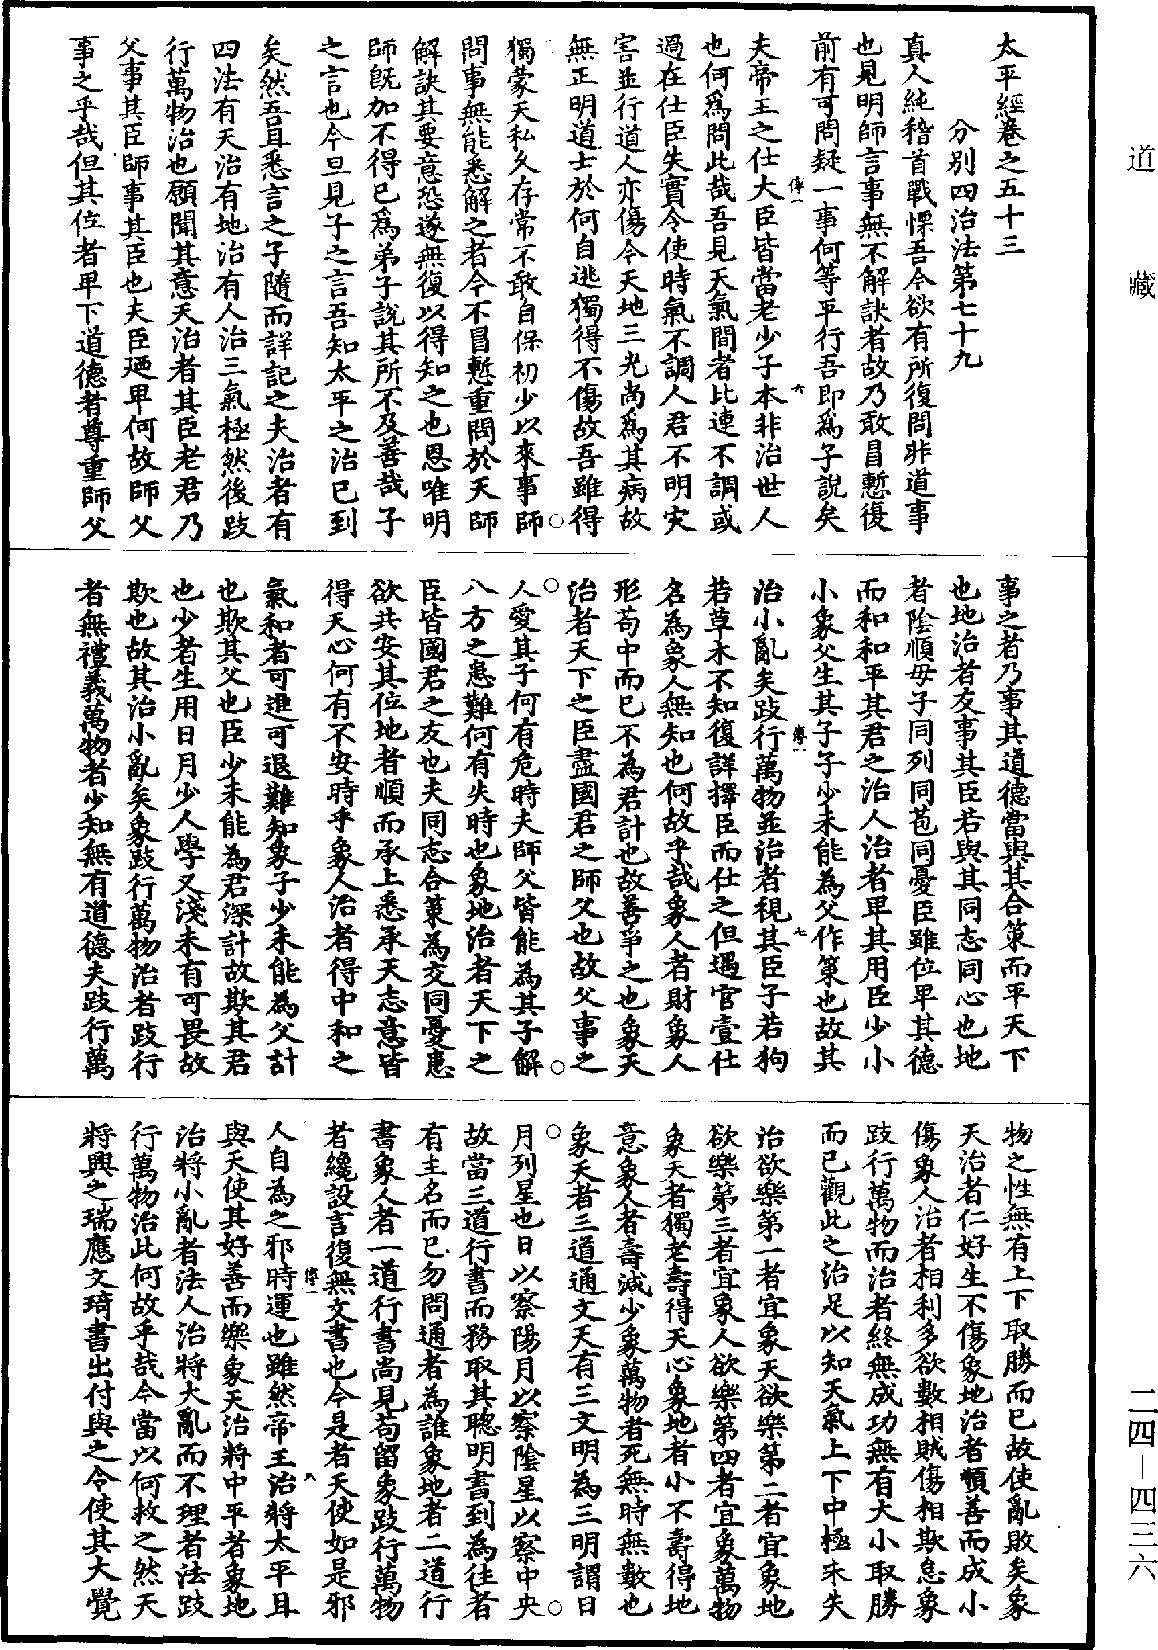 道藏
太平經卷之五十三
分別四治法第七十九
真人純稽首戰慄吾今欲有所復問非道事
也見明師言事無不解訣者故乃敢冒慙復
前有可問疑一事何等平行吾即爲子說矣
夫帝王之仕大臣皆當老少子本非治世人
也何爲問此哉吾見天氣間者比連不調或
過在仕臣失實令使時氣不調人君不明灾
害並行道人亦傷今天地三光尚爲其病故
無正明道士於何自逃獨得不傷故吾雖得
獨蒙天私久存常不敢自保初少以來事師
問事無能悉解之者今不冒慙重問於天師
解訣其要意恐遂無復以得知之也恩唯明
師旣加不得已爲弟子說其所不及善哉子
之言也今旦見子之言吾知太平之治已到
矣然吾且悉言之子隨而詳記之夫治者有
四法有天治有地治有人治三氣極然後跂
行萬物治也願聞其意天治者其臣老君乃
父事其臣師事其臣也夫臣廼卑何故師父
事之乎哉但其位者卑下道德者尊重師父
事之者乃事其道德當與其合策而平天下
也地治者友事其臣若與其同志同心也地
者陰順母子同列同苞同憂臣雖位卑其德
而和和平其君之治人治者卑其用臣少小
小象父生其子子少未能為父作策也故其
治小亂矣跂行萬物並治者視其臣子若狗
若草木不知復詳擇臣而仕之但遇官壹仕
名為象人無知也何故乎哉象人者財象人
形苟中而已不為君計也故善爭之也象天
治者天下之臣盡國君之師父也故父事之
人愛其子何有危時夫師父皆能為其子解
八方之患難何有失時也象地治者天下之
臣皆國君之友也夫同志合策為交同憂患
欲共安其位地者順而承上悉承天志意皆
得天心何有不安時乎象人治者得中和之
氣和者可進可退難知象子少未能為父計
也欺其父也臣少未能為君深計故欺其君
也少者生用日月少人學又淺未有可畏故
欺也故其治小亂矣象跂行萬物治者跂行
者無禮義萬物者少知無有道德夫跂行萬
物之性無有上下取勝而已故使亂敗矣象
天治者仁好生不傷象地治者順善而成小
傷象人治者相利多欲數相賊傷相欺怠象
跂行萬物而治者終無成功無有大小取勝
而已觀此之治足以知天氣上下中極未失
治欲樂第一者宜象天欲樂第二者宜象地
欲樂第三者宜象人欲樂第四者宜象萬物
象天者獨老壽得天心象地者小不壽得地
意象人者壽減少象萬物者死無時無數也
象天者三道通文天有三文明為三明謂日
月列星也日以察陽月以察陰星以察中央
故當三道行書而務取其聰明書到為往者
有主名而已勿問通者為誰象地者二道行
書象人者一道行書尚見苟留象跂行萬物
者纔設言復無文書也今是者天使如是邪
人自為之邪時運也雖然帝王治將太平且
與天使其好善而樂象天治將中平者象地
治將小亂者法人治將大亂而不理者法跂
行萬物治此何故乎哉今當以何救之然天
將興之瑞應文琦書出付與之令使其大覺
二四－四三六